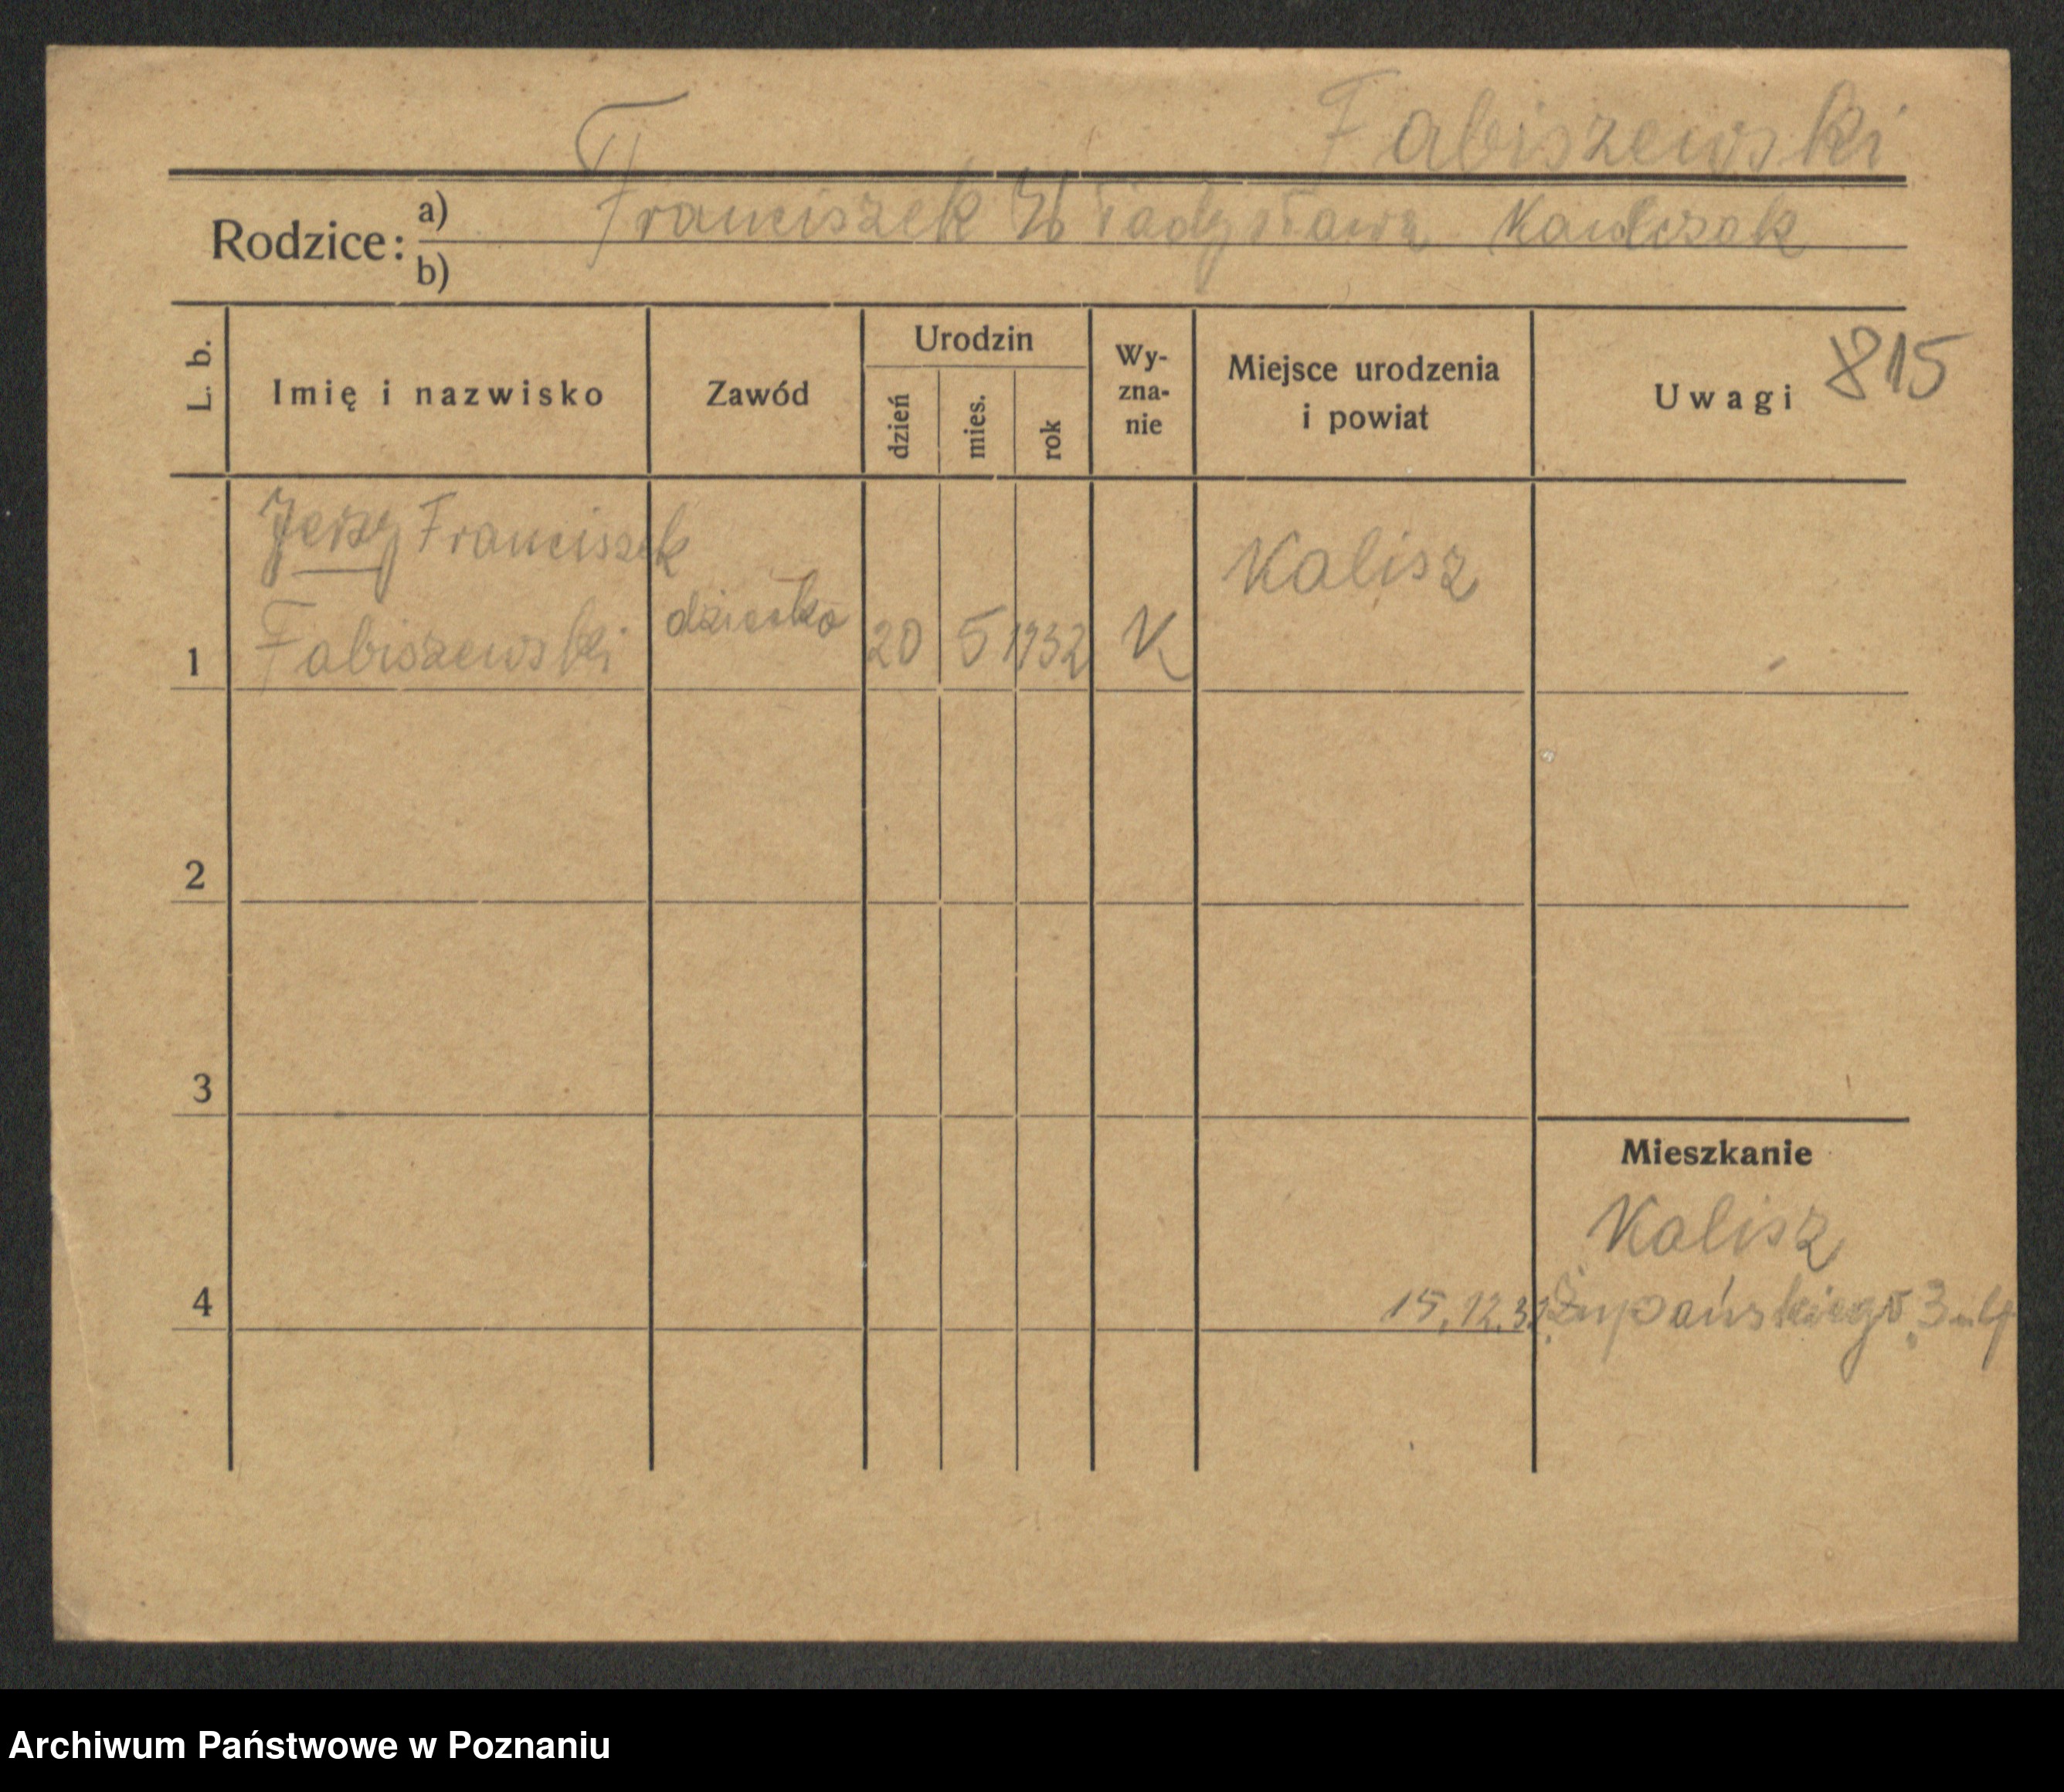 Fabiszewski
Rodzice: a) Franciszek Władysława
b)
L. b.
Imię i nazwisko
Zawód
Urodzin
dzień
mies.
rok
Wy-
zna-
nie
Miejsce urodzenia
i powiat
Uwagi
815
Jerzy Franciszek
1 Fabiszewski dziecko 20 5 1932 K Kalisz
2
3
Mieszkanie
Kalisz
4 15.12.32 Żupańskiego 3
Archiwum Państwowe w Poznaniu